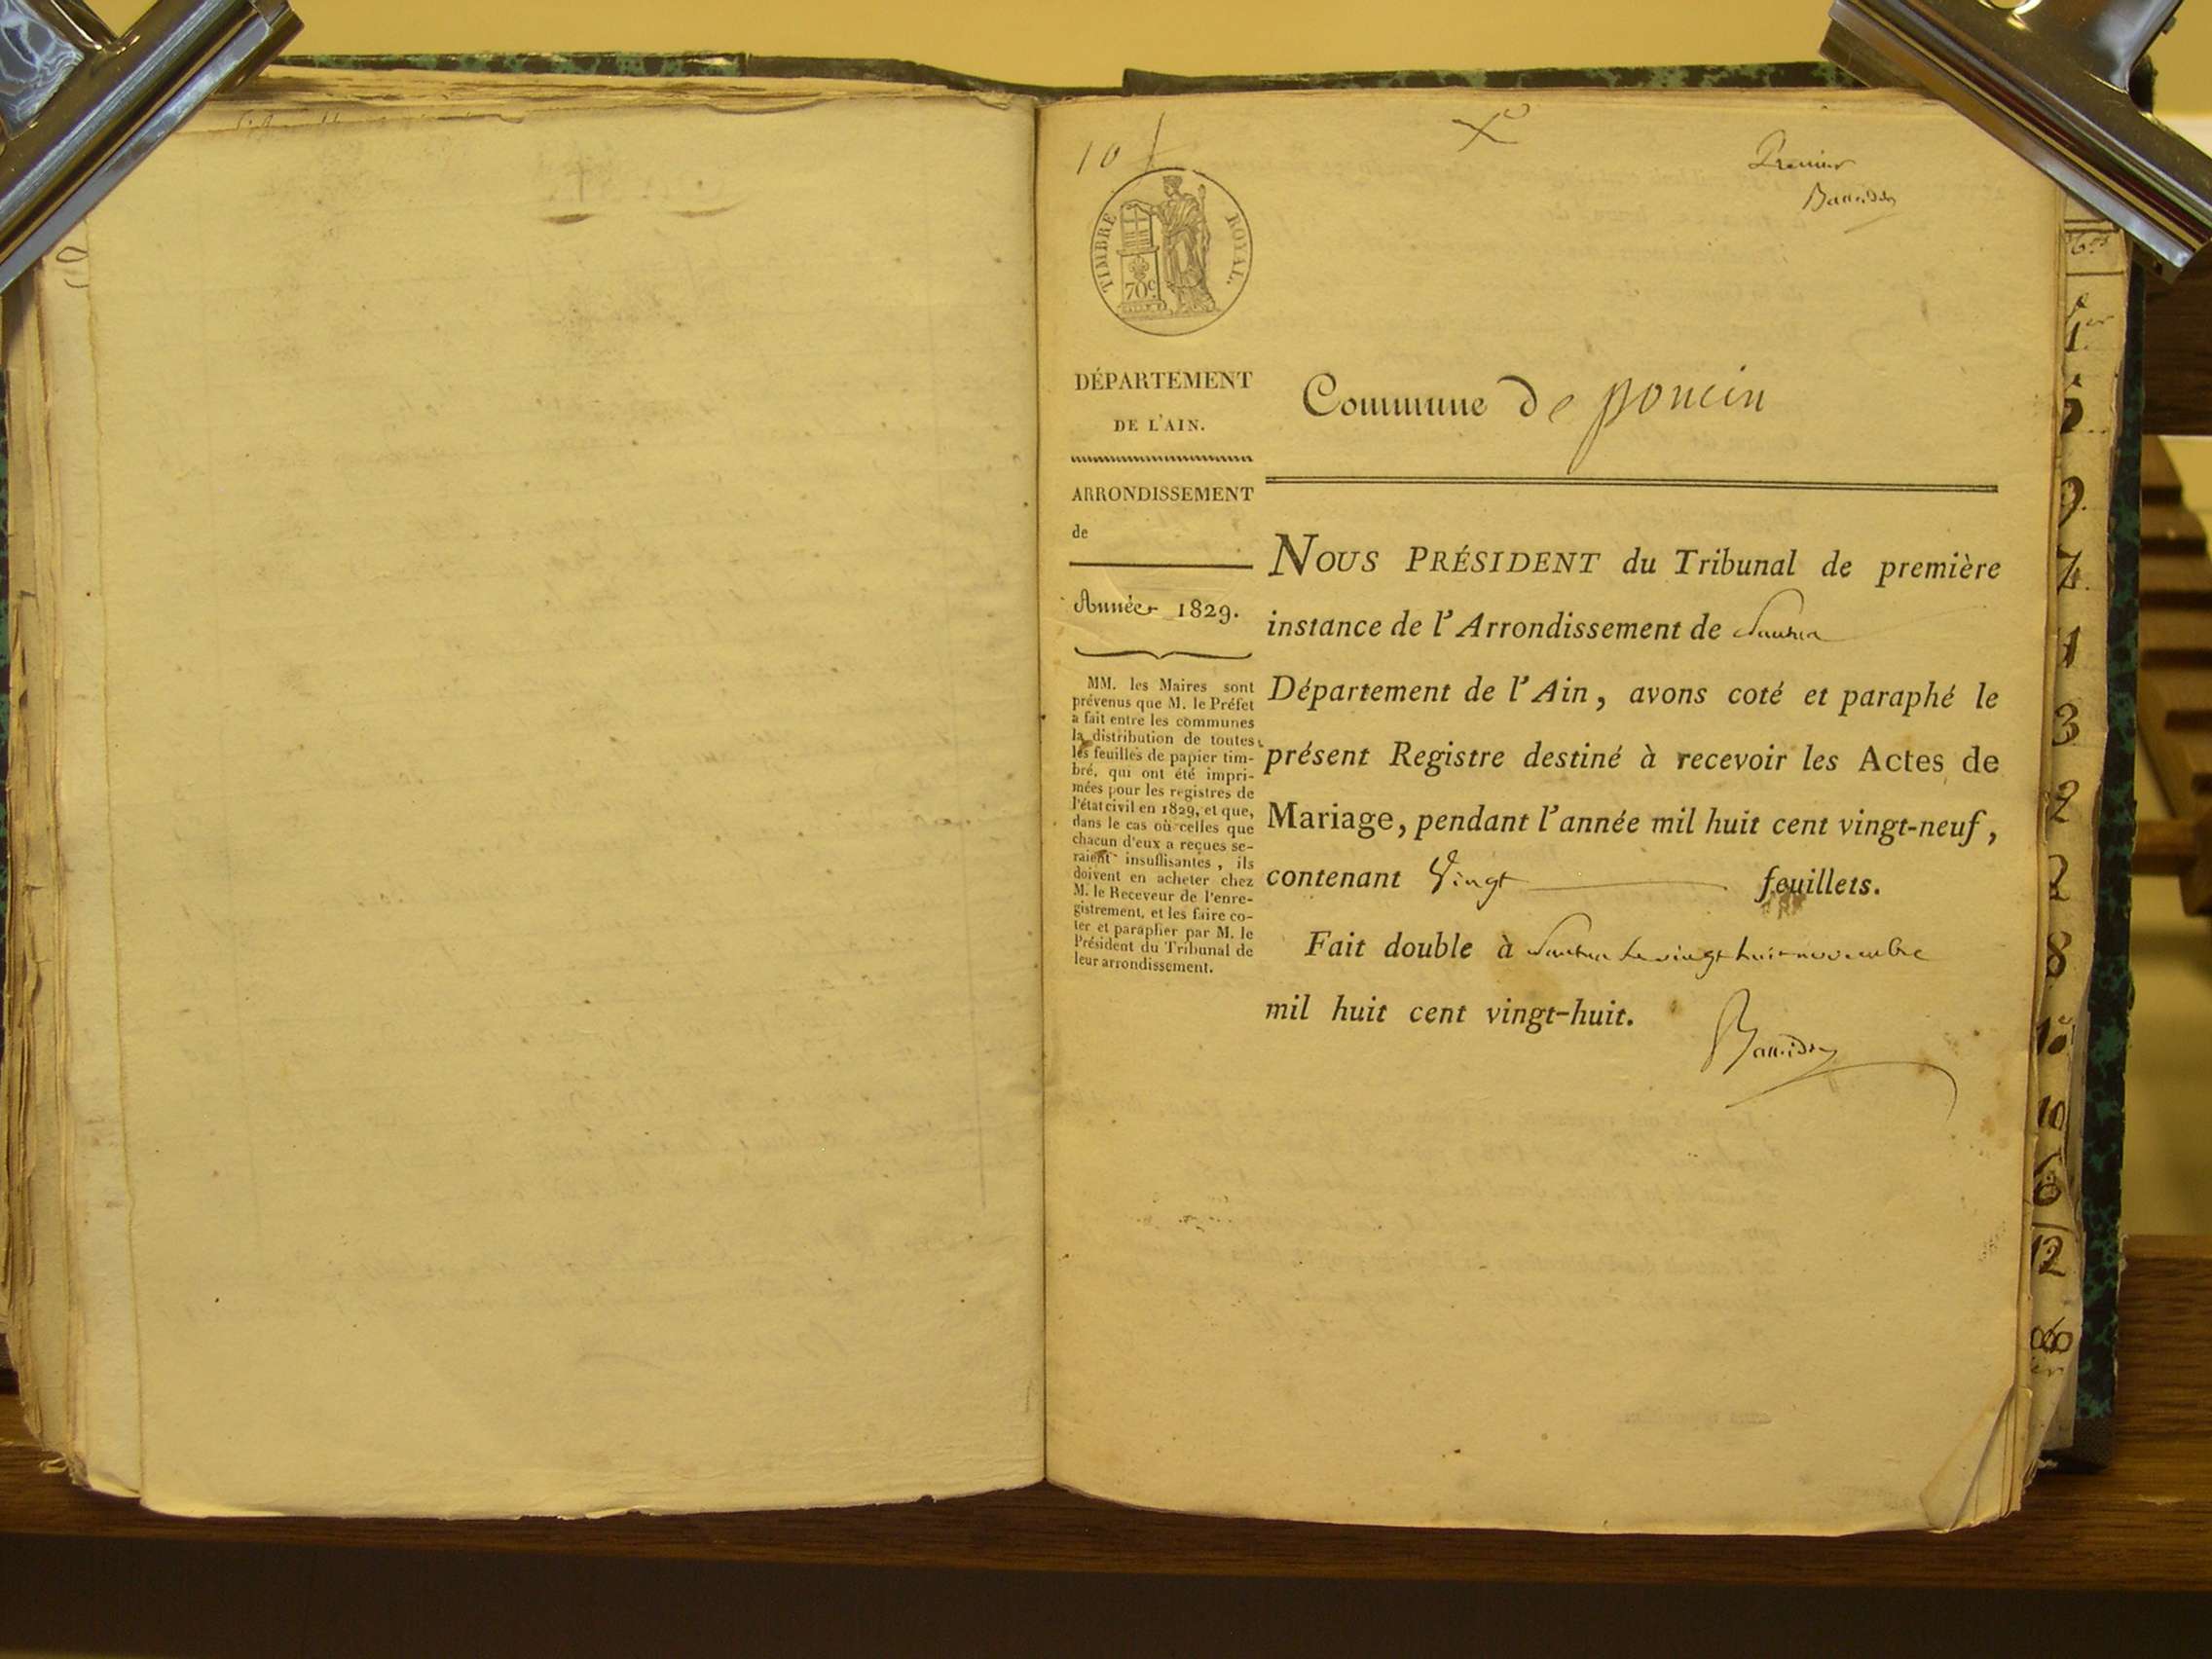 10
Premier
TIMBRE ROYAL.
70c
DÉPARTEMENT
DE L'AIN.
ARRONDISSEMENT
de
Année 1829.
MM. les Maires sont
prévenus que M. le Préfet
a fait entre les communes
la distribution de toutes
les feuilles de papier tim-
bré, qui ont été impri-
mées pour les registres de
l'état civil en 1829, et que,
dans le cas où celles que
chacun d'eux a reçues se-
raient insuffisantes, ils
doivent en acheter chez
M. le Receveur de l'enre-
gistrement, et les faire co-
ter et parapher par M. le
Président du Tribunal de
leur arrondissement.
Commune de poncin
NOUS PRÉSIDENT du Tribunal de première
instance de l'Arrondissement de Nantua
Département de l'Ain, avons coté et paraphé le
présent Registre destiné à recevoir les Actes de
Mariage, pendant l'année mil huit cent vingt-neuf,
contenant Vingt feuillets.
Fait double à Nantua le vingt huit novembre
mil huit cent vingt-huit.